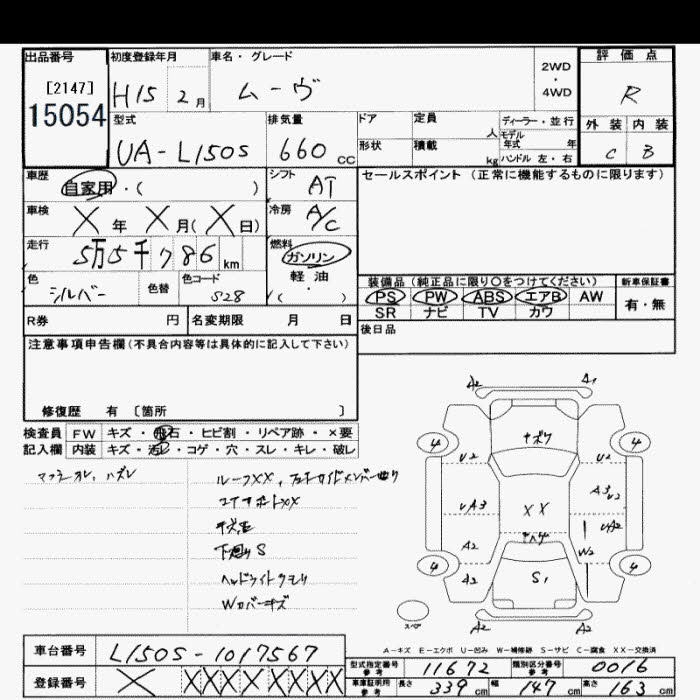 出品番号
[2147]
15054
初度登録年月
H15 2月
車名・グレード
ムーヴ
2WD
・
4WD
評価点
R
外装 内装
C B
型式
UA-L150S
排気量
660 cc
ドア
形状
定員
人
積載
kg
ディーラー・並行
モデル年式 年
ハンドル 左・右
車歴
自家用・( )
シフト
AT
セールスポイント (正常に機能するものに限ります)
車検
X 年 X 月(X日)
冷房
A/C
走行
5万5千786km
燃料
ガソリン
軽油
・
( )
色
シルバー
色替
色コード
S28
装備品 (純正品に限り○をつけてください)
新車保証書
PS PW ABS エアB AW
有・無
SR ナビ TV カワ
R券 円
名変期限 月 日
後日品
注意事項申告欄(不具合内容等は具体的に記入して下さい)
修復歴 有 〔箇所 〕
検査員 FW キズ・飛石・ヒビ割・リペア跡・×要
記入欄 内装 キズ・汚レ・コゲ・穴・スレ・キレ・破レ
ルーフXX,
下廻りS
ヘッドライトクモリ
Wカバーキズ
A2 A1
キズワ
4 4
U2 U2
UA3 XX A3 U2
UA2
A2 W2
4 4
A2 S1
A2 A2
スペア
A-キズ E-エクボ U-凹み W-補修跡 S-サビ C-腐食 XX-交換済
車台番号
L150S-1017567
登録番号
X XXXXXXX
型式指定番号 参考
11672
類別区分番号 参考
0016
車庫証明用 参考
長さ 339 cm 幅 147 cm 高さ 163 cm